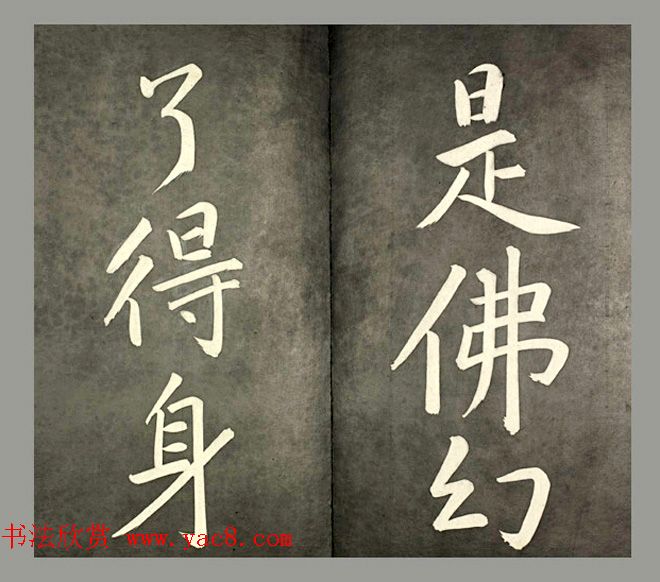 是佛幻
了得身
书法欣赏 www.yac8.com